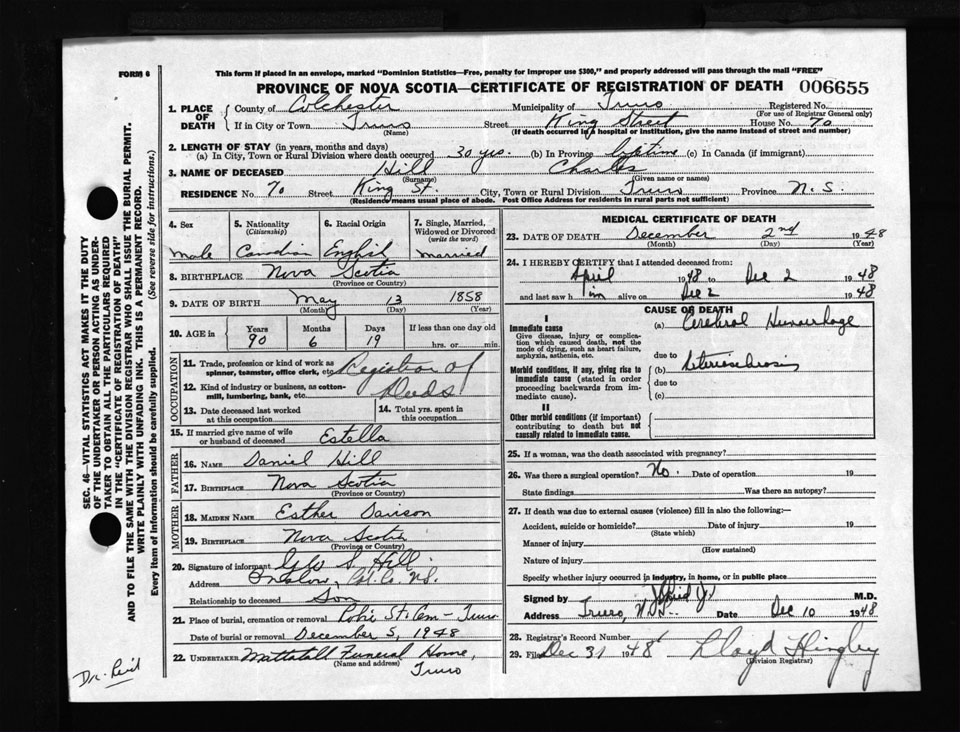 FORM 6
This form if placed in an envelope, marked "Dominion Statistics—Free, penalty for improper use $300," and properly addressed will pass through the mail "FREE"
PROVINCE OF NOVA SCOTIA—CERTIFICATE OF REGISTRATION OF DEATH 006655
1. PLACE OF DEATH
County of Colchester Municipality of Truro Registered No.
(For use of Registrar General only)
If in City or Town Truro Street King Street House No. 70
(Name) (If death occurred in a hospital or institution, give the name instead of street and number)
2. LENGTH OF STAY (in years, months and days)
(a) In City, Town or Rural Division where death occurred 30 yrs. (b) In Province lifetime (c) In Canada (if immigrant)
3. NAME OF DECEASED Hill Charles
(Surname) (Given name or names)
RESIDENCE No. 70 Street King St. City, Town or Rural Division Truro Province N.S.
(Residence means usual place of abode. Post Office Address for residents in rural parts not sufficient)
4. Sex
male
5. Nationality
(Citizenship)
Canadian
6. Racial Origin
English
7. Single, Married, Widowed or Divorced
(write the word)
married
8. BIRTHPLACE Nova Scotia
(Province or Country)
9. DATE OF BIRTH May 13 1858
(Month) (Day) (Year)
10. AGE in
Years Months Days If less than one day old
90 6 19 hrs. or min.
OCCUPATION
11. Trade, profession or kind of work as
spinner, teamster, office clerk, etc.
12. Kind of industry or business, as cotton-
mill, lumbering, bank, etc.
of Deeds
13. Date deceased last worked
at this occupation
14. Total yrs. spent in
this occupation
15. If married give name of wife
or husband of deceased Estella
FATHER
16. NAME Daniel Hill
17. BIRTHPLACE Nova Scotia
(Province or Country)
MOTHER
18. MAIDEN NAME Esther Davison
19. BIRTHPLACE Nova Scotia
(Province or Country)
20. Signature of informant Geo S. Hill
Address Onslow, Col. Co. N.S.
Relationship to deceased Son
21. Place of burial, cremation or removal Robie St. Cem - Truro
Date of burial or removal December 5, 1948
22. UNDERTAKER Mattatall Funeral Home,
(Name and address) Truro
MEDICAL CERTIFICATE OF DEATH
23. DATE OF DEATH December 2nd 1948
(Month) (Day) (Year)
24. I HEREBY CERTIFY that I attended deceased from:
April 1948 to Dec 2 1948
and last saw him alive on Dec 2 1948
CAUSE OF DEATH
I
Immediate cause
Give disease, injury or complication which caused death, not the mode of dying, such as heart failure, asphyxia, asthenia, etc.
(a) Cerebral Hemorrhage
due to
Morbid conditions, if any, giving rise to immediate cause (stated in order proceeding backwards from immediate cause).
(b) Arteriosclerosis
due to
(c)
II
Other morbid conditions (if important) contributing to death but not causally related to immediate cause.
25. If a woman, was the death associated with pregnancy?
26. Was there a surgical operation? No. Date of operation 19
State findings Was there an autopsy?
27. If death was due to external causes (violence) fill in also the following:—
Accident, suicide or homicide? Date of injury 19
(State which)
Manner of injury
(How sustained)
Nature of injury
Specify whether injury occurred in industry, in home, or in public place
Signed by Reid Jr M.D.
Address Truro, N.S. Date Dec 10 1948
28. Registrar's Record Number
29. Filed Dec 31 1948
(Division Registrar)
SEC. 46—VITAL STATISTICS ACT MAKES IT THE DUTY
OF THE UNDERTAKER OR PERSON ACTING AS UNDER-
TAKER TO OBTAIN ALL THE PARTICULARS REQUIRED
IN THE "CERTIFICATE OF REGISTRATION OF DEATH"
AND TO FILE THE SAME WITH THE DIVISION REGISTRAR WHO SHALL ISSUE THE BURIAL PERMIT.
WRITE PLAINLY WITH UNFADING INK. THIS IS A PERMANENT RECORD.
Every item of information should be carefully supplied. (See reverse side for instructions.)
Dr. Reid